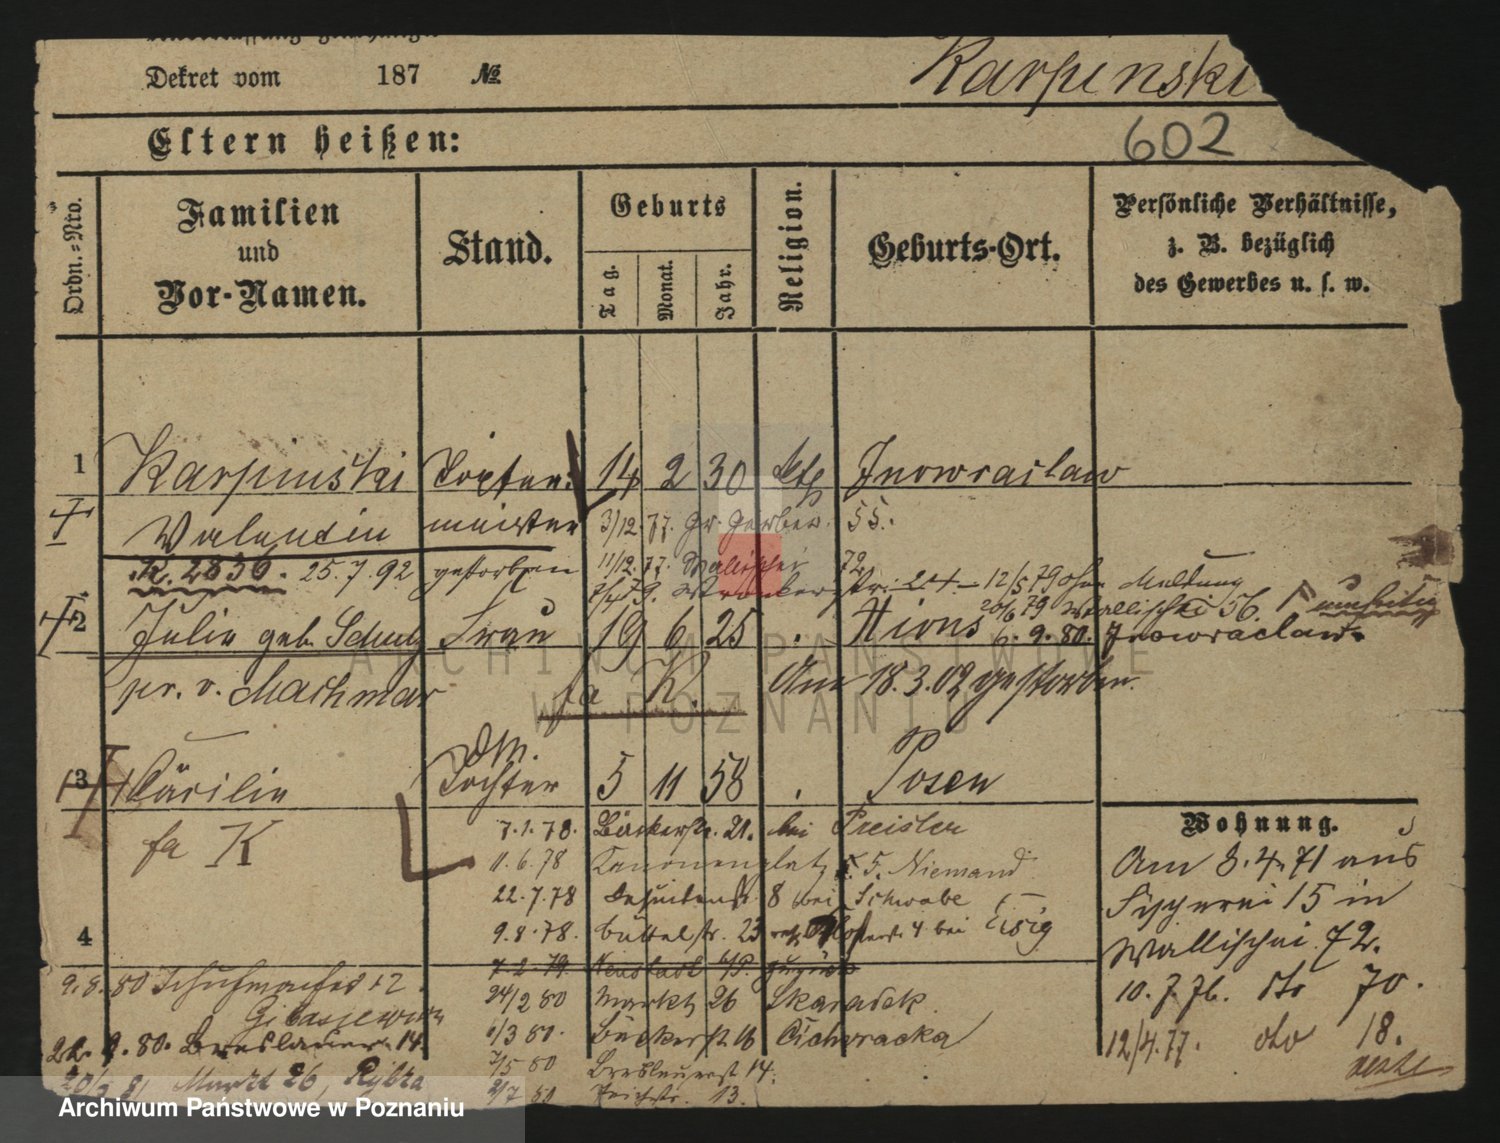 Dekret vom 187 №
Karpinski
602
Eltern heißen:
Ordn.=Nro.
Familien
und
Vor-Namen.
Stand.
Geburts
Tag.
Monat.
Jahr.
Religion.
Geburts-Ort.
Persönliche Verhältnisse,
z. B. bezüglich
des Gewerbes u. s. w.
1 Karpinski Töpfer 14 2 30 kth Inowraclaw
Valentin meister 3/12 77. Gr. Gerber. 55.
K. 2836. 25.7.92 gestorben 11/12 77 Wallischei 72
7/4 79. 24 12/5 79 ohne Meldung
20/6 79 Wallischei 56.
2 Julie geb. Schulz Frau 19 6 25 Xions 6. 9. 80. Inowraclaw.
pr. v. Machmar fa K. Am 18.3.02 gestorben.
3 Cäcilie Tochter 5 11 58 Posen
fa K
7.1.78. Bäckerstr. 21. bei Preisler
11.6.78 Kanonenplatz 5. Niemand
22.7.78 Jesuitenstr 8 bei Schwabe
9.8.78. Büttelstr. 23 4 bei Eisig
4
7.2.79. Neustadt zurück
24/2 80 Markt 26 Skaradek.
1/3 80. Bäckerst 16 Cichoracka
2/5 80 Breslauerst 14.
2/7 81 13.
9.8.80 Schuhmacherst 2.
22. 9. 80. Breslauer 14.
Markt 26, Rybka
Wohnung.
Am 3.4.71 aus
Fischerei 15 in
Wallischei 72.
10. 7. 76. dto 70.
12/4.77. dto 18.
ARCHIWUM PAŃSTWOWE
W POZNANIU
Archiwum Państwowe w Poznaniu